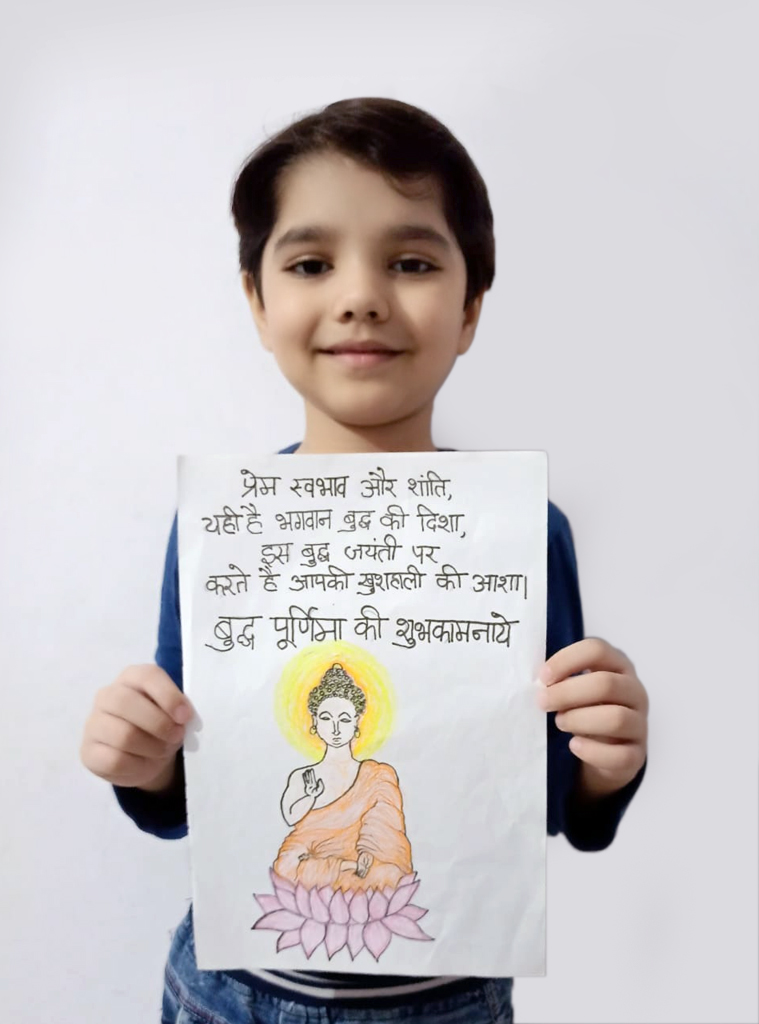 प्रेम स्वभाव और शांति,
यही है भगवान बुद्ध की दिशा,
इस बुद्ध जयंती पर
करते है आपकी खुशहाली की आशा।
बुद्ध पूर्णिमा की शुभकामनाये